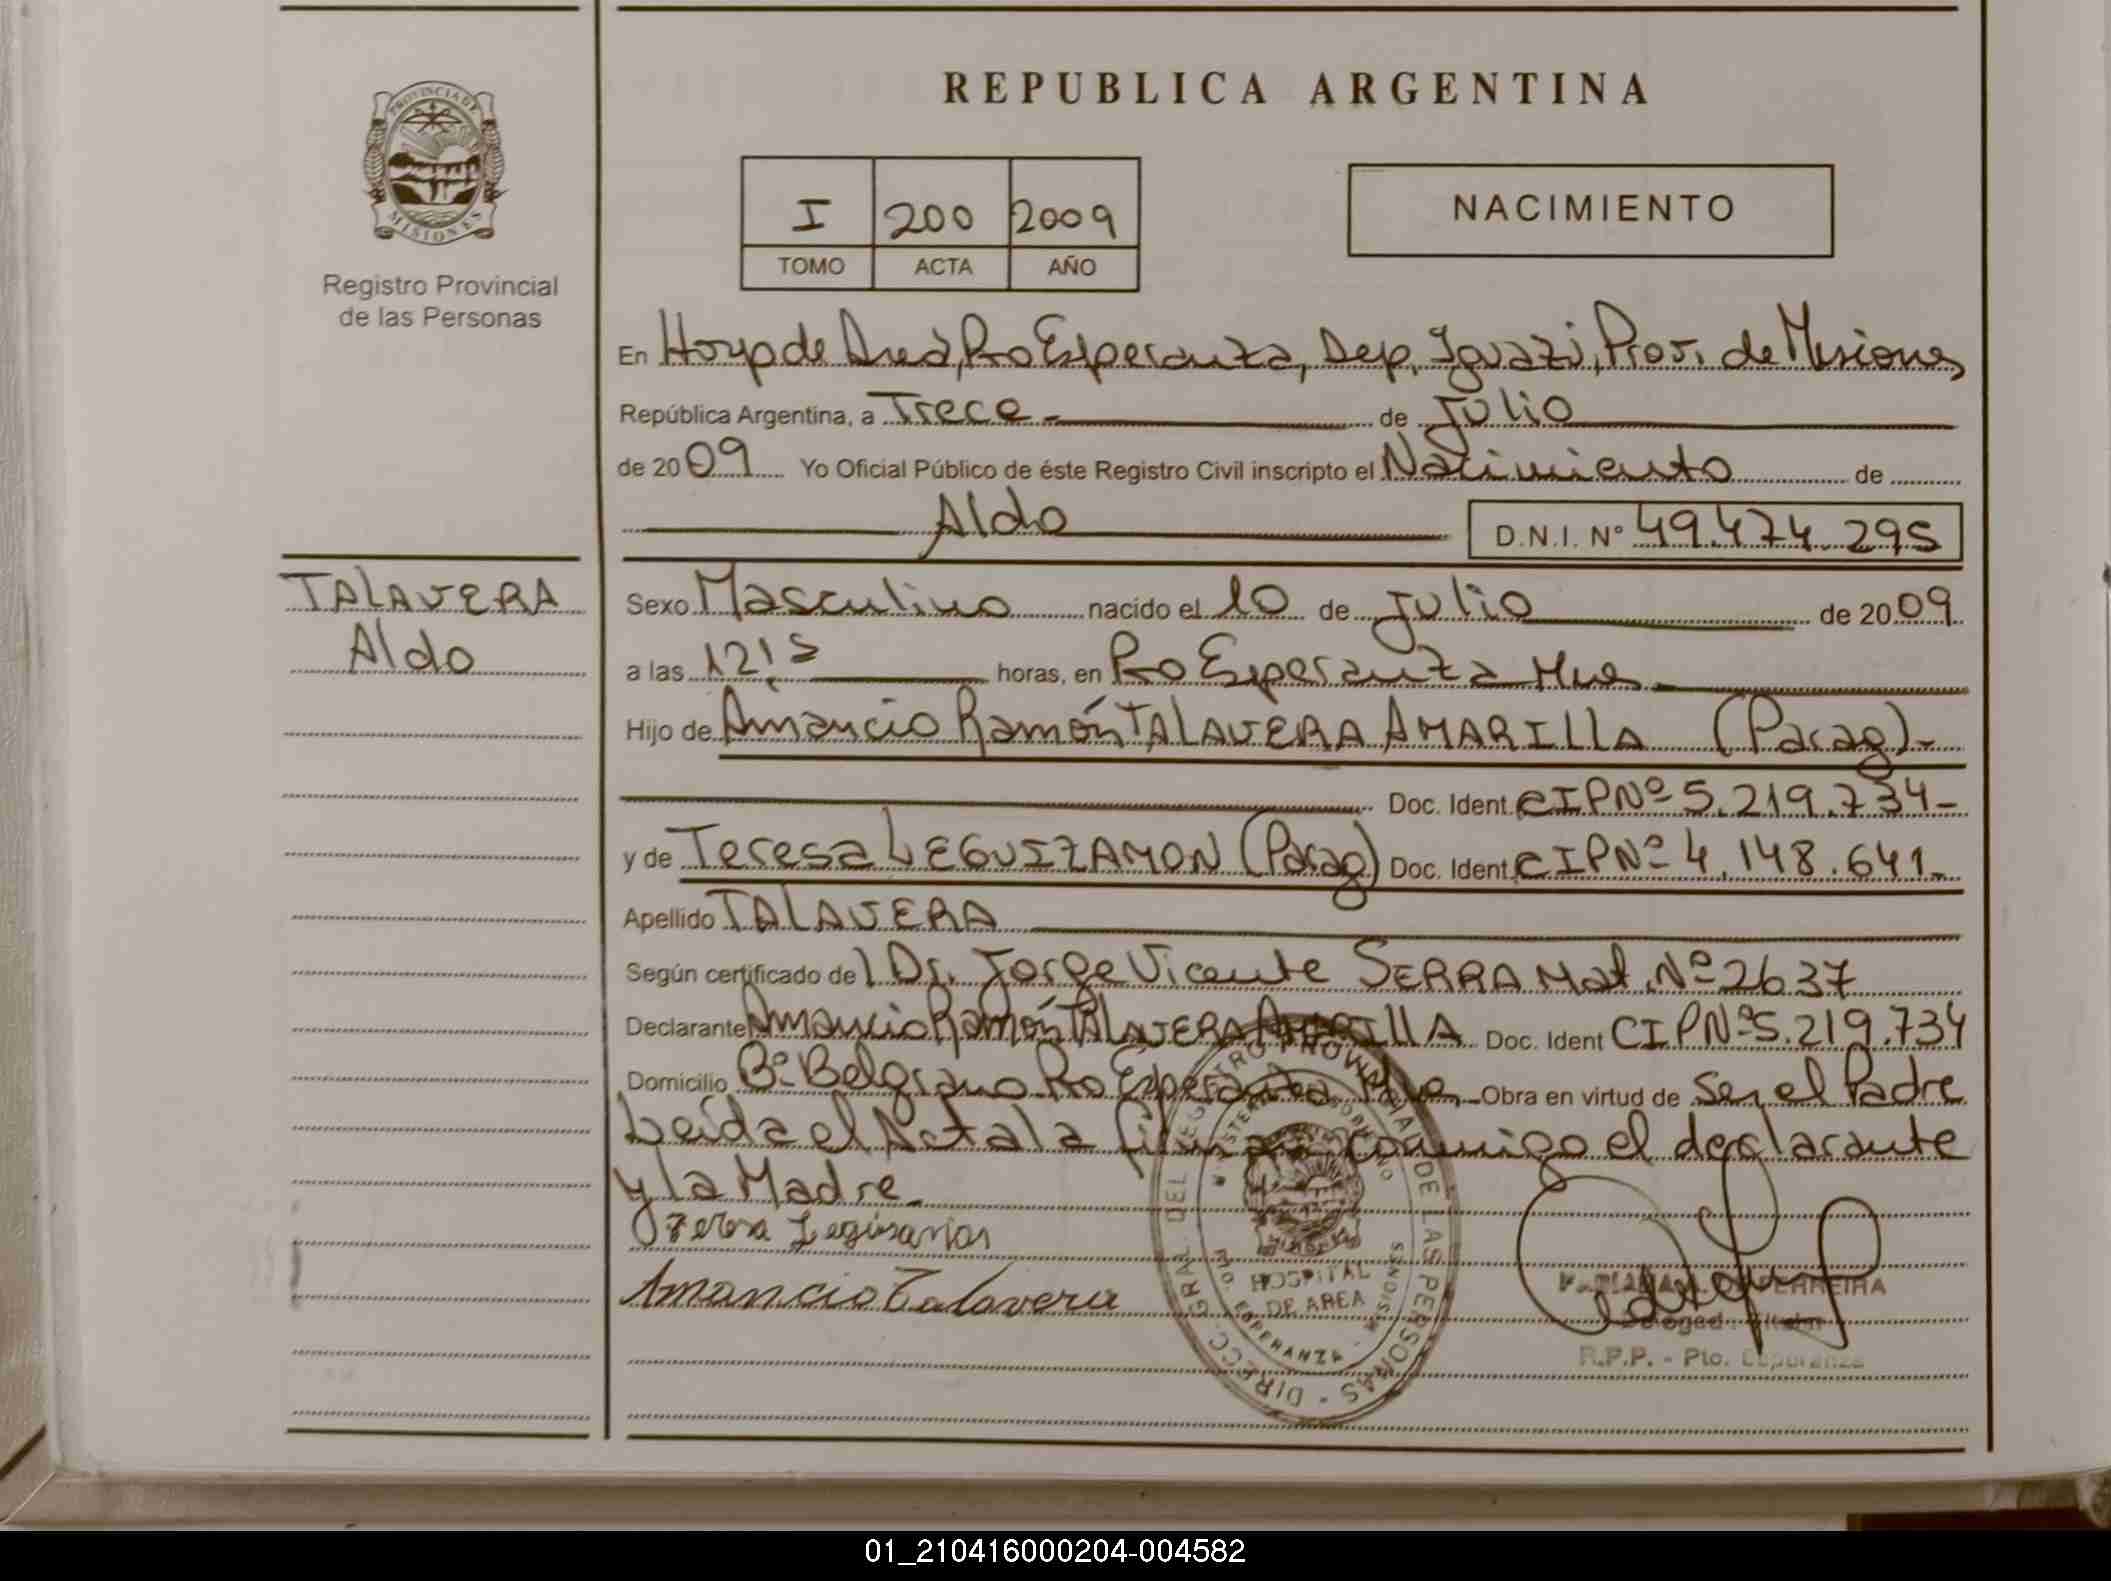 PROVINCIA DE
MISIONES
Registro Provincial
de las Personas
TALAVERA
Aldo
REPUBLICA ARGENTINA
I 200 2009
TOMO ACTA AÑO
NACIMIENTO
En Hosp de Area, Pto Esperanza, Dep. Iguazú, Prov. de Misiones
República Argentina, a Trece de Julio
de 2009 Yo Oficial Público de éste Registro Civil inscripto el Nacimiento de
Aldo D.N.I. Nº 49.474.295
Sexo Masculino nacido el 10 de Julio de 2009
a las horas, en Pto Esperanza Mnes
Hijo de Amancio Ramón TALAVERA AMARILLA (Parag)
Doc. Ident. CIPNº 5.219.734
y de Teresa LEGUIZAMON (Parag) Doc. Ident. CIPNº 4.148.641
Apellido TALAVERA
Según certificado del Dr. Jorge Vicente SERRA Mat. Nº 2637
Declarante Amancio Ramón TALAVERA AMARILLA Doc. Ident CIPNº 5.219.734
Domicilio Bº Belgrano Pto Esperanza Mnes Obra en virtud de Ser el Padre
Leída el Acta la firman conmigo el declarante
y la Madre
Amancio Talavera
DIRECC. GRAL. DEL REGISTRO PROVINCIAL DE LAS PERSONAS
HOSPITAL
DE AREA
ESPERANZA - MISIONES
R.P.P. - Pto. Esperanza
01_210416000204-004582